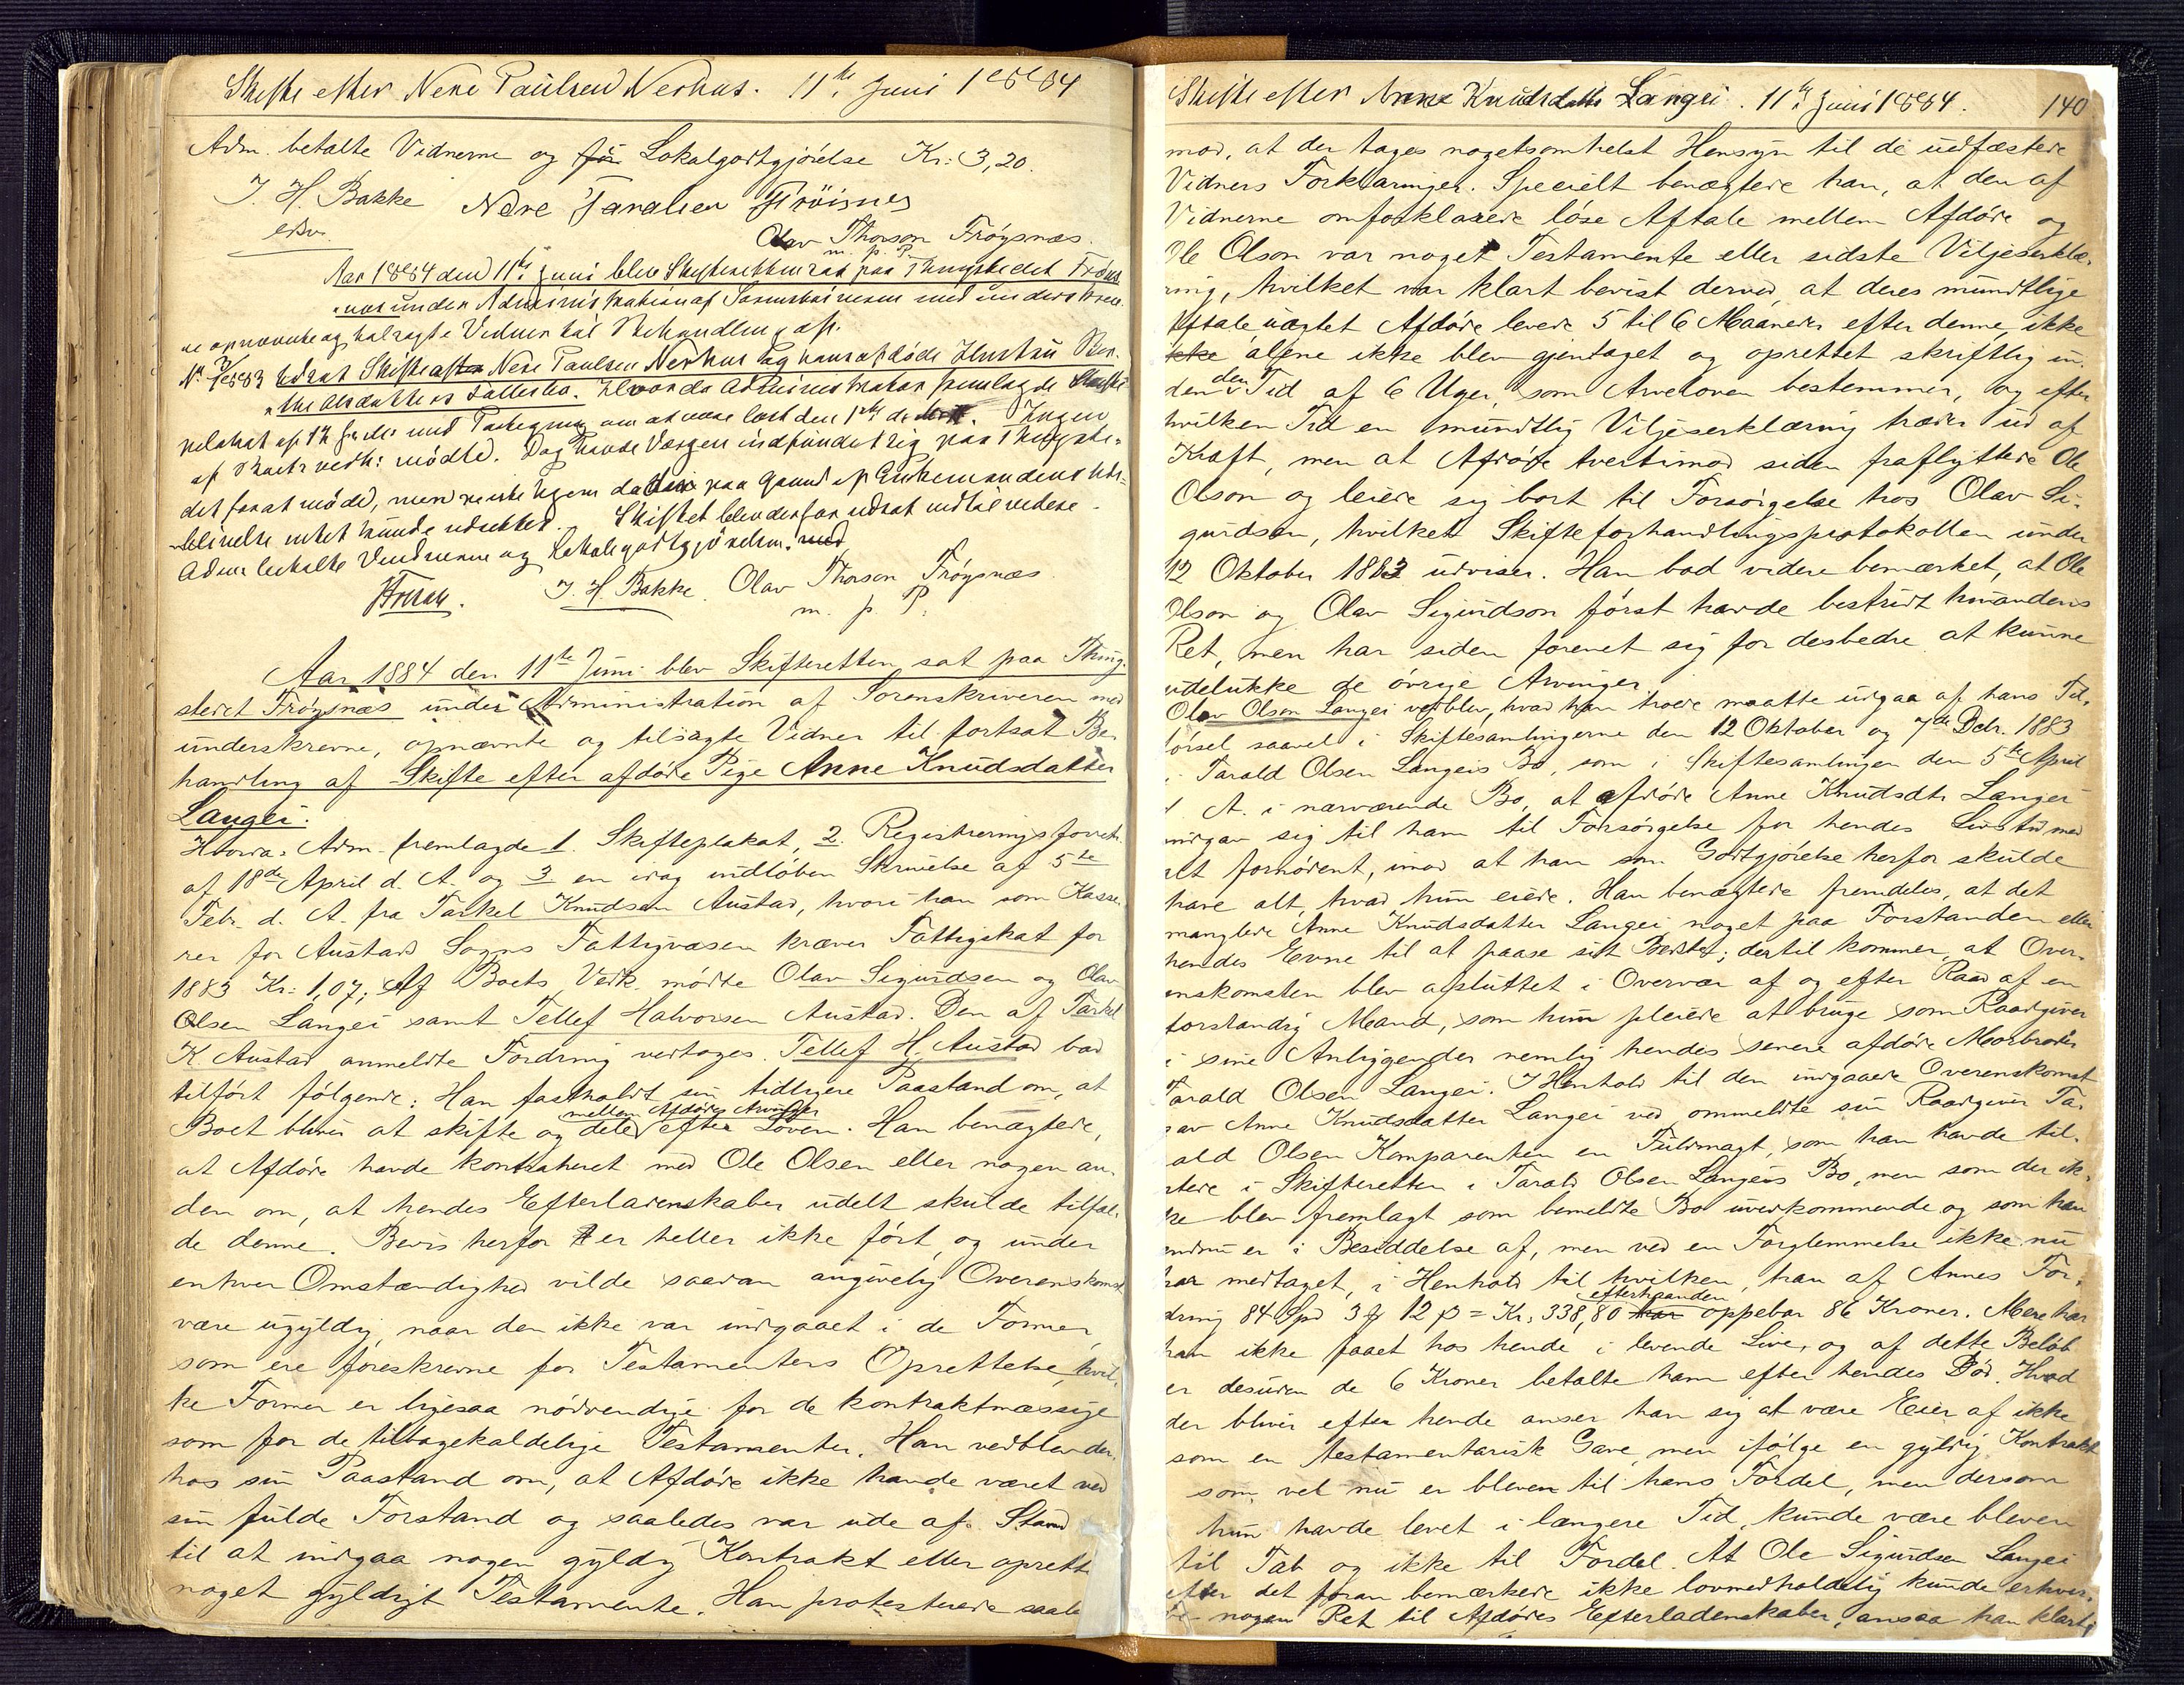 Skifte efter Nere Paulsen Nerhus. 11te Juni 1884
Adm. betalte Vidnerne og for Lokalgodtgjørelse Kr: 3,20.
J. H. Bakke Nere Taralsen Frøisnes
Olav Thorson Frøysnæs.
m. p. P.
Aar 1884 den 11te Juni blev Skifteretten sat paa Thingstedet Frøis-
næs under Administration af Sorenskriveren med underskrev-
ne opnævnte og tilsagte Vidner til Behandling af:
Nr. udsat Skifte efter Nere Paulsen Nerhus og hans afdøde Hustru
datters Fællesbo. Hvorda Administrator fremlagde Skifte-
plakat af med Paategning om at være læst den 1ste Ingen
af Boets vedk: mødte. Dog havde Værgen indfundet sig paa Thingste-
det for at møde, men reiste igjen da der paa Grund af Enkemandens Ude-
blivelse intet kunde udrettes. Skiftet blev derfor udsat indtil videre.
Adm betalte Vidnerne og Lokalegodtgjørelsen.
J. H. Bakke. Olav Thorson Frøysnæs
m. p. P.
Aar 1884 den 11te Juni blev Skifteretten sat paa Thing-
stedet Frøysnæs under Administration af Sorenskriveren med
underskrevne, opnævnte og tilsagte Vidner til fortsat Be-
handling af Skifte efter afdøde Pige Anne Knudsdatter
Langei.
Hvorda Adm. fremlagde 1. Skifteplakat, 2. Registreringsforretn.
af 18de April d. A. og 3 en idag indløben Skrivelse af 5te
Febr. d. A. fra Tarkel Knudsen Austad, hvori han som Kasse-
rer for Austad Sogns Fattigvæsen kræver Fattigskat for
1883 Kr: 1,07; Af Boets Vedk. mødte Olav Sigurdsen og Olav
Olsen Langei samt Tellef Halvorsen Austad. Den af Tarkel
K Austad anmeldte Fordring vedtoges. Tellef H. Austad bad
tilført følgende: Han fastholdt sin tidligere Paastand om, at
Boet bliver at skifte og dele mellem Afdødes Arvinger efter Loven. Han benægtede,
at Afdøde havde kontraheret med Ole Olsen eller nogen an-
den om, at hendes Efterladenskaber udelt skulde tilfal-
de denne. Bevis herfor er heller ikke ført, og under
enhver Omstændighed vilde saadan angivelig Overenskomst
være ugyldig, naar den ikke var indgaaet i de Former,
som ere foreskrevne for Testamenters Oprettelse, hvil-
ke Former er ligesaa nødvendige for de kontraktmæssige
som for de tilbagekaldelige Testamenter. Han vedblev der-
hos sin Paastand om, at Afdøde ikke havde været ved
sin fulde Forstand og saaledes var ude af Stand
til at indgaa nogen gyldig Kontrakt eller oprette
noget gyldigt Testamente. Han protesterede saale
Skifte efter Anne Knudsdatter Langei. 11te Juni 1884. 140
mod, at der tages nogetsomhelst Hensyn til de udfæstede
Vidners Forklaringer. Specielt benægtede han, at den af
Vidnerne omforklarede løse Aftale mellem Afdøde og
Ole Olson var noget Testamente eller sidste Viljeserklæ-
ring, hvilket var klart bevist derved, at deres mundtlige
Aftale uagtet Afdøde levede 5 til 6 Maaneder efter denne, ikke
ikke alene ikke blev gjentaget og oprettet skriftlig in-
den den Tid af 6 Uger, som Arveloven bestemmer, og efter
hvilken Tid en mundtlig Viljeserklæring træder ud af
Kraft, men at Afdøde tvertimod siden fraflyttede Ole
Olson og leiede sig bort til Forsørgelse hos Olav Si-
gurdson, hvilket Skifteforhandlingsprotokollen under
12 Oktober 1883 udviser. Han bad videre bemærket, at Ole
Olson og Olav Sigurdson først havde bestridt hinandens
Ret, men har siden forenet sig for desbedre at kunne
udelukke de øvrige Arvinger.
Olav Olsen Langei vedblev, hvad han troede maatte udgaa af hans Til-
førsel saavel i Skiftesamlingerne den 12 Oktober og 7de Debr. 1883
i Tarald Olsen Langeis Bo, som i Skiftesamlingen den 5te April
d A. i nærværende Bo, at afdøde Anne Knudsdtr Langei
indgav sig til ham til Forsørgelse for hendes Livstid med
alt fornødent, imod at han som Godtgjørelse herfor skulde
have alt, hvad hun eiede. Han benægtede fremdeles, at det
manglede Anne Knudsdatter Langei noget paa Forstanden eller
hendes Evne til at paase sit Bedste; dertil kommer, at Over-
enskomsten blev afsluttet i Overvær af og efter Raad af en
forstandig Mand, som hun pleiede at bruge som Raadgiver
i sine Anliggender nemlig hendes senere afdøde Morbroder
Tarald Olsen Langei. I Henhold til den indgaaede Overenskomst
gav Anne Knudsdatter Langei ved ommeldte sin Raadgiver Ta-
rald Olsen Komparenten en Fuldmagt, som han havde til-
stede i Skifteretten i Tarald Olsen Langeis Bo, men som der ik-
ke blev fremlagt som bemeldte Bo uvedkommende og som han
endnu er i Besiddelse af, men ved en Forglemmelse ikke nu
har medtaget, i Henhold til hvilken, han af Annes For-
dring 84 Spd 3 12 = Kr: 338,80 efterhaanden oppebar 86 Kroner. Mere har
han ikke faaet hos hende i levende Live, og af dette Beløb
er desuden de 6 Kroner betalte ham efter hendes Død. Hvad
der bliver efter hende anser han sig at være Eier af ikke
som en testamentarisk Gave, men ifølge en gyldig Kontrakt
som vel nu er bleven til hans Fordel, men dersom
hun havde levet i længere Tid, kunde være bleven
til Tab og ikke til Fordel. At Ole Sigurdsen Langei
efter det foran bemærkede ikke lovmedholdelig kunde erhver-
ve nogen Ret til Afdødes Efterladenskaber, ansaa han klart,